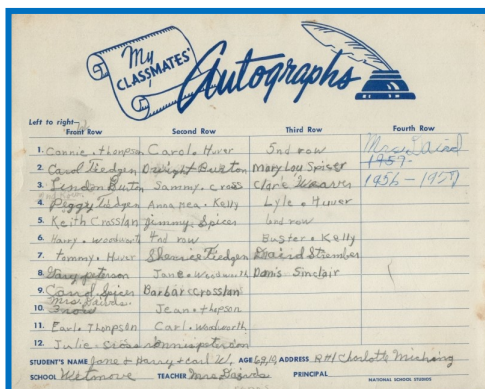 My
CLASSMATES'
Autographs
Left to right
Front Row Second Row Third Row Fourth Row
1. Connie. Thompson Carol. Huver 5nd row Mrs. Laird
2. Carol Tiedgen Dwight Burton Mary Lou Spicer 1957-
3. Linden Burton Sammy. Cross Clare Weaver 1956-1957
4. Peggy Tidgen Anna mea. Kelly Lyle. Huver
5. Keith Crosslan Jimmy. Spicer 6nd row
6. Harry. woodworth 4nd row Buster. Kelly
7. Tommy. Huver Sherrie Tiedgen David Strember
8. Gary peterson Jane. Woodworth Danis Sinclair
9. Carol Spicer Barbar Crosslan
Mrs.
10. Jean. thopson
11. Earl. Thompson Carl. Woodworth
12. Julie. Connie peterson
STUDENT'S NAME Jane & Harry & Carl W. AGE ADDRESS R#1 Charlotte
SCHOOL TEACHER Mrs. PRINCIPAL
NATIONAL SCHOOL STUDIOS